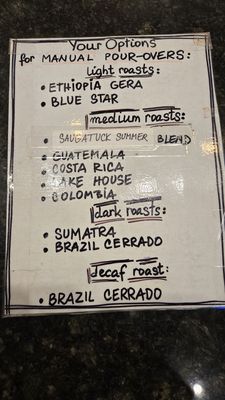 Your Options
for MANUAL POUR-OVERS:
light roasts:
• ETHIOPIA GERA
• BLUE STAR
medium roasts:
• SAUGATUCK SUMMER BLEND
• GUATEMALA
• COSTA RICA
• LAKE HOUSE
• COLOMBIA
dark roasts:
• SUMATRA
• BRAZIL CERRADO
decaf roast:
• BRAZIL CERRADO